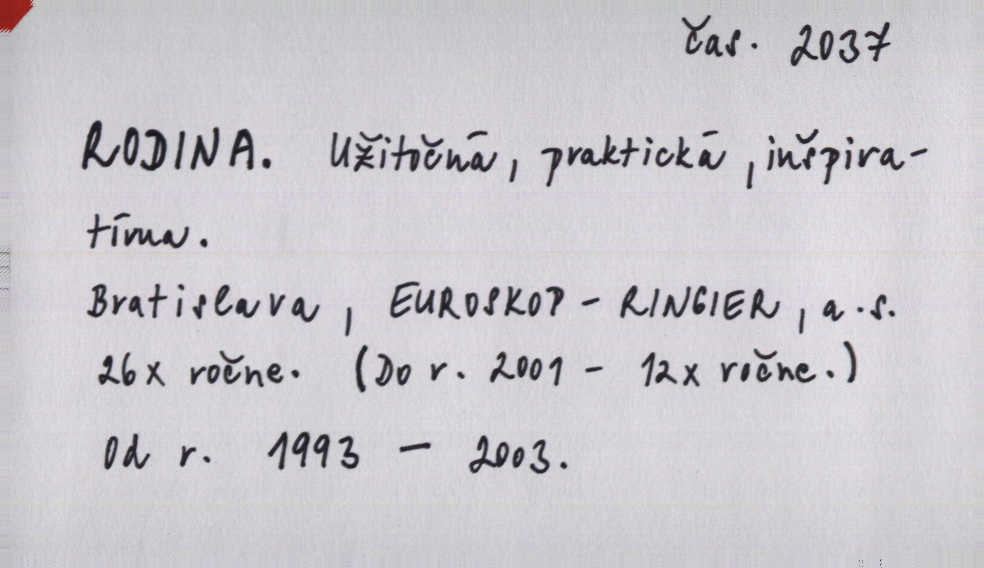 čas. 2037
RODINA. Užitočná, praktická, inšpira-
tívna.
Bratislava, EUROSKOP - RINGIER, a.s.
26x ročne. (Do r. 2001 - 12x ročne.)
Od r. 1993 - 2003.